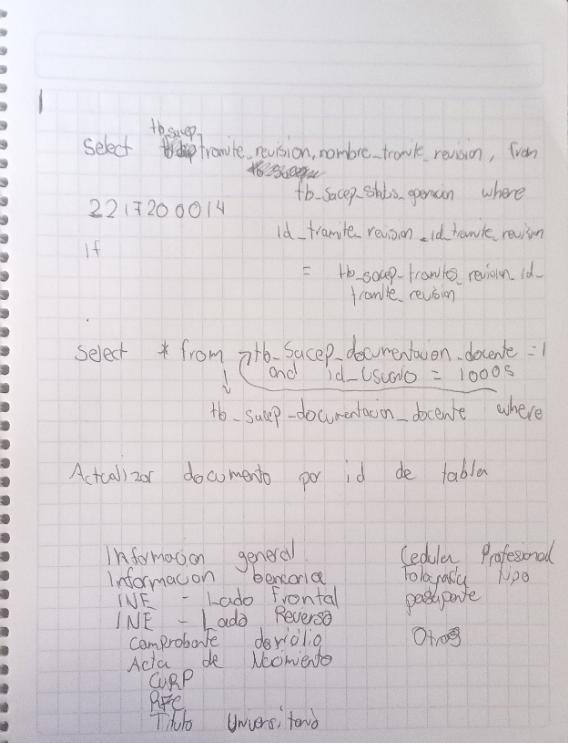 tb_sacep_
Select tramite_revision, nombre_tramite_revision, from
tb_sacep_status_general where
2217200014
id_tramite_revision_id_tramite_revision
If
= tb_sacep_tramites_revision_id_
tramite_revision
Select * from tb_sacep_documentacion_docente = 1
and id_usuario = 10005
tb_sacep_documentacion_docente where
Actualizar documento por id de tabla
Informacion general
Informacion bancaria
INE - Lado Frontal
INE - Lado Reverso
Comprobante
Acta de Nacimiento
CURP
RFC
Titulo Universitario
Cedula Profesional
Otros